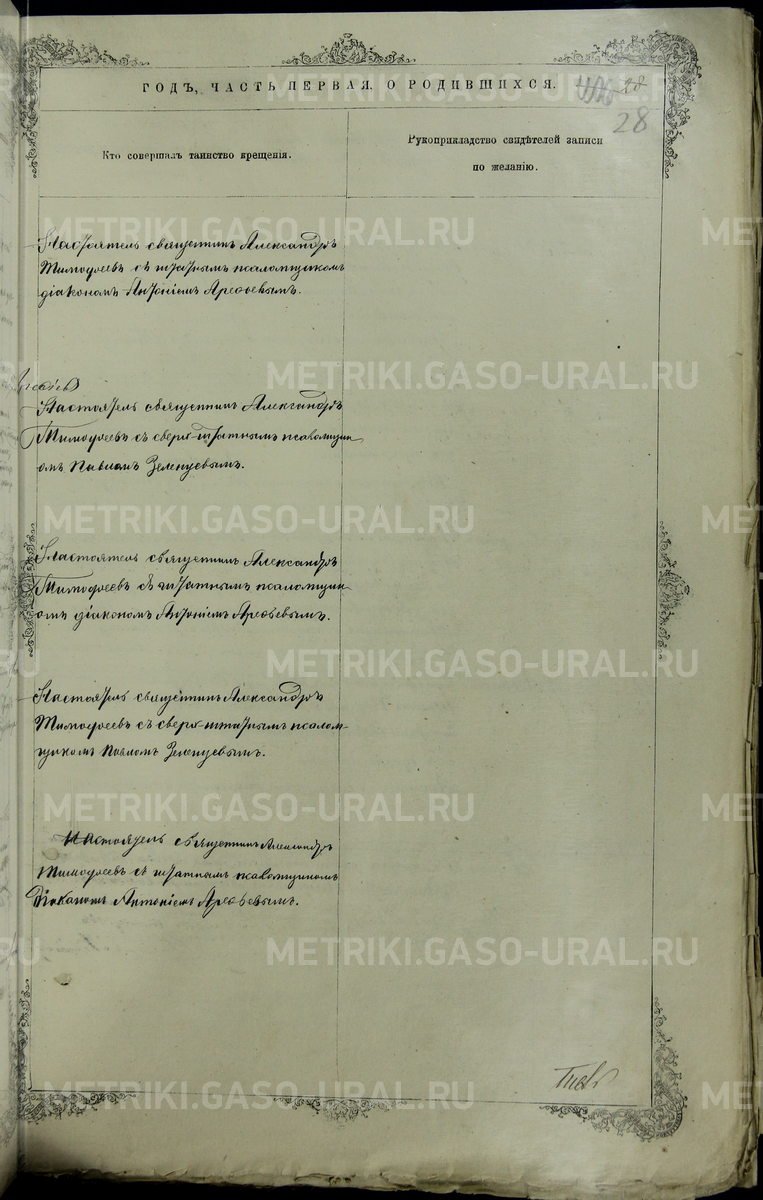 ГОДЪ, ЧАСТЬ ПЕРВАЯ, О РОДИВШИХСЯ. 28
28
Кто совершалъ таинство крещенія.
Рукоприкладство свидѣтелей записи
по желанію.
Настоятель священникъ Александръ
Тимофеевъ съ штатнымъ псаломщикомъ
діакономъ Антоніемъ Арефьевымъ.
Настоятель священникъ Александръ
Тимофеевъ съ сверх-штатнымъ псаломщик
омъ Павломъ Зеленцевымъ.
Настоятель священникъ Александръ
Тимофеевъ съ штатнымъ псаломщик
омъ діакономъ Антоніемъ Арефьевымъ.
Настоятель священникъ Александръ
Тимофеевъ съ сверх-штатнымъ псалом-
щикомъ Павломъ Зеленцевымъ.
Настоятель священникъ Александръ
Тимофеевъ съ штатнымъ псаломщикомъ
Діакономъ Антоніемъ Арефьевымъ.
METRIKI.GASO-URAL.RU